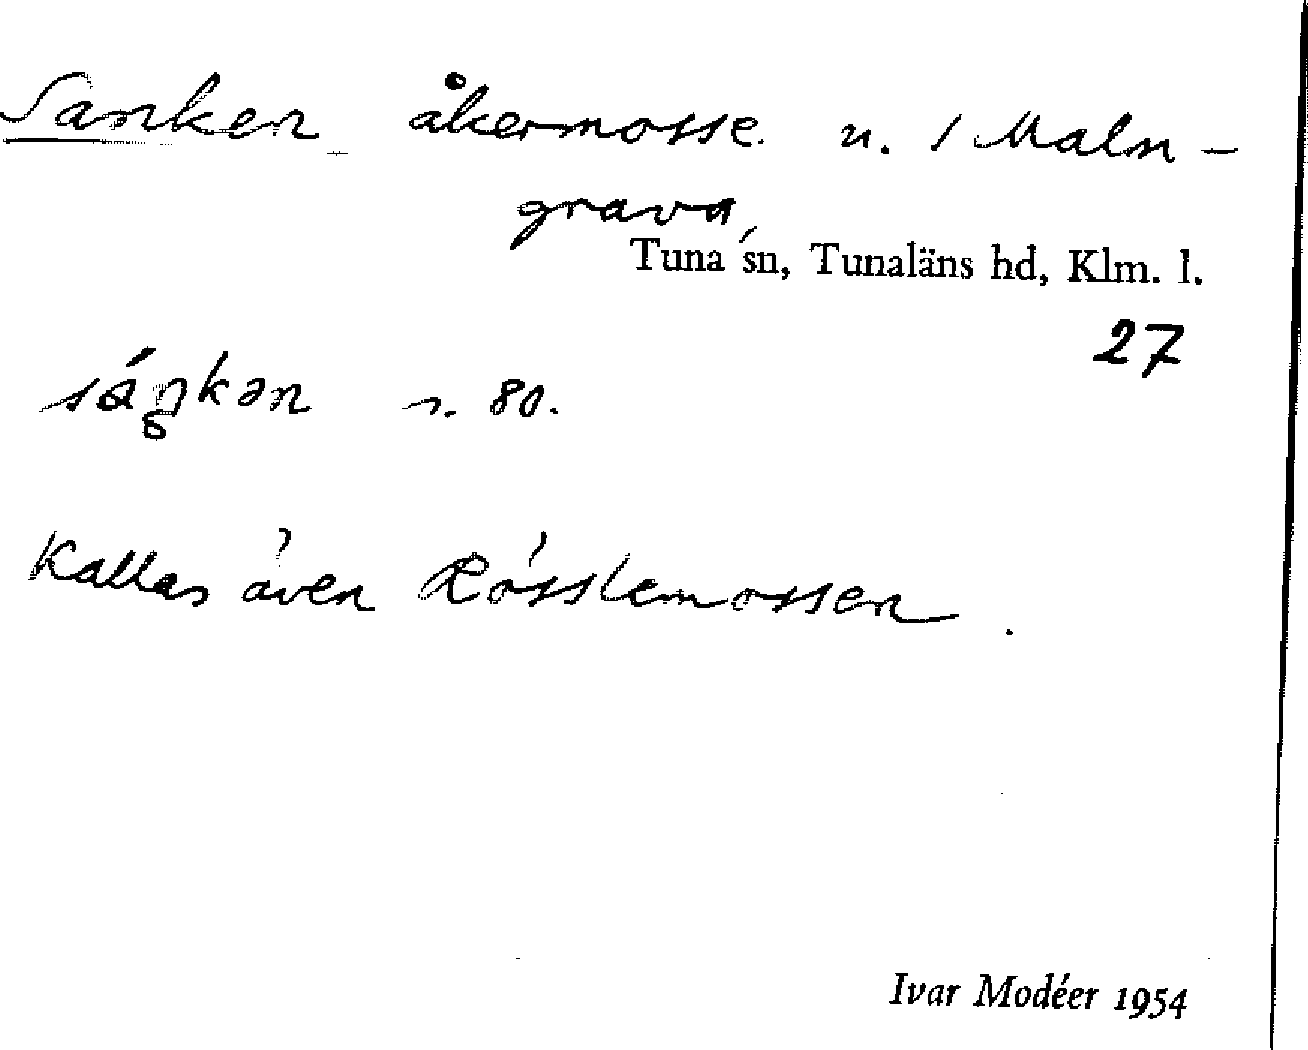 Sanken åkermosse u. 1 Malm-
grava,
Tuna sn, Tunaläns hd, Klm. l.
27
sáŋkən s. 80.
Kallas även Rösslemossen.
Ivar Modéer 1954